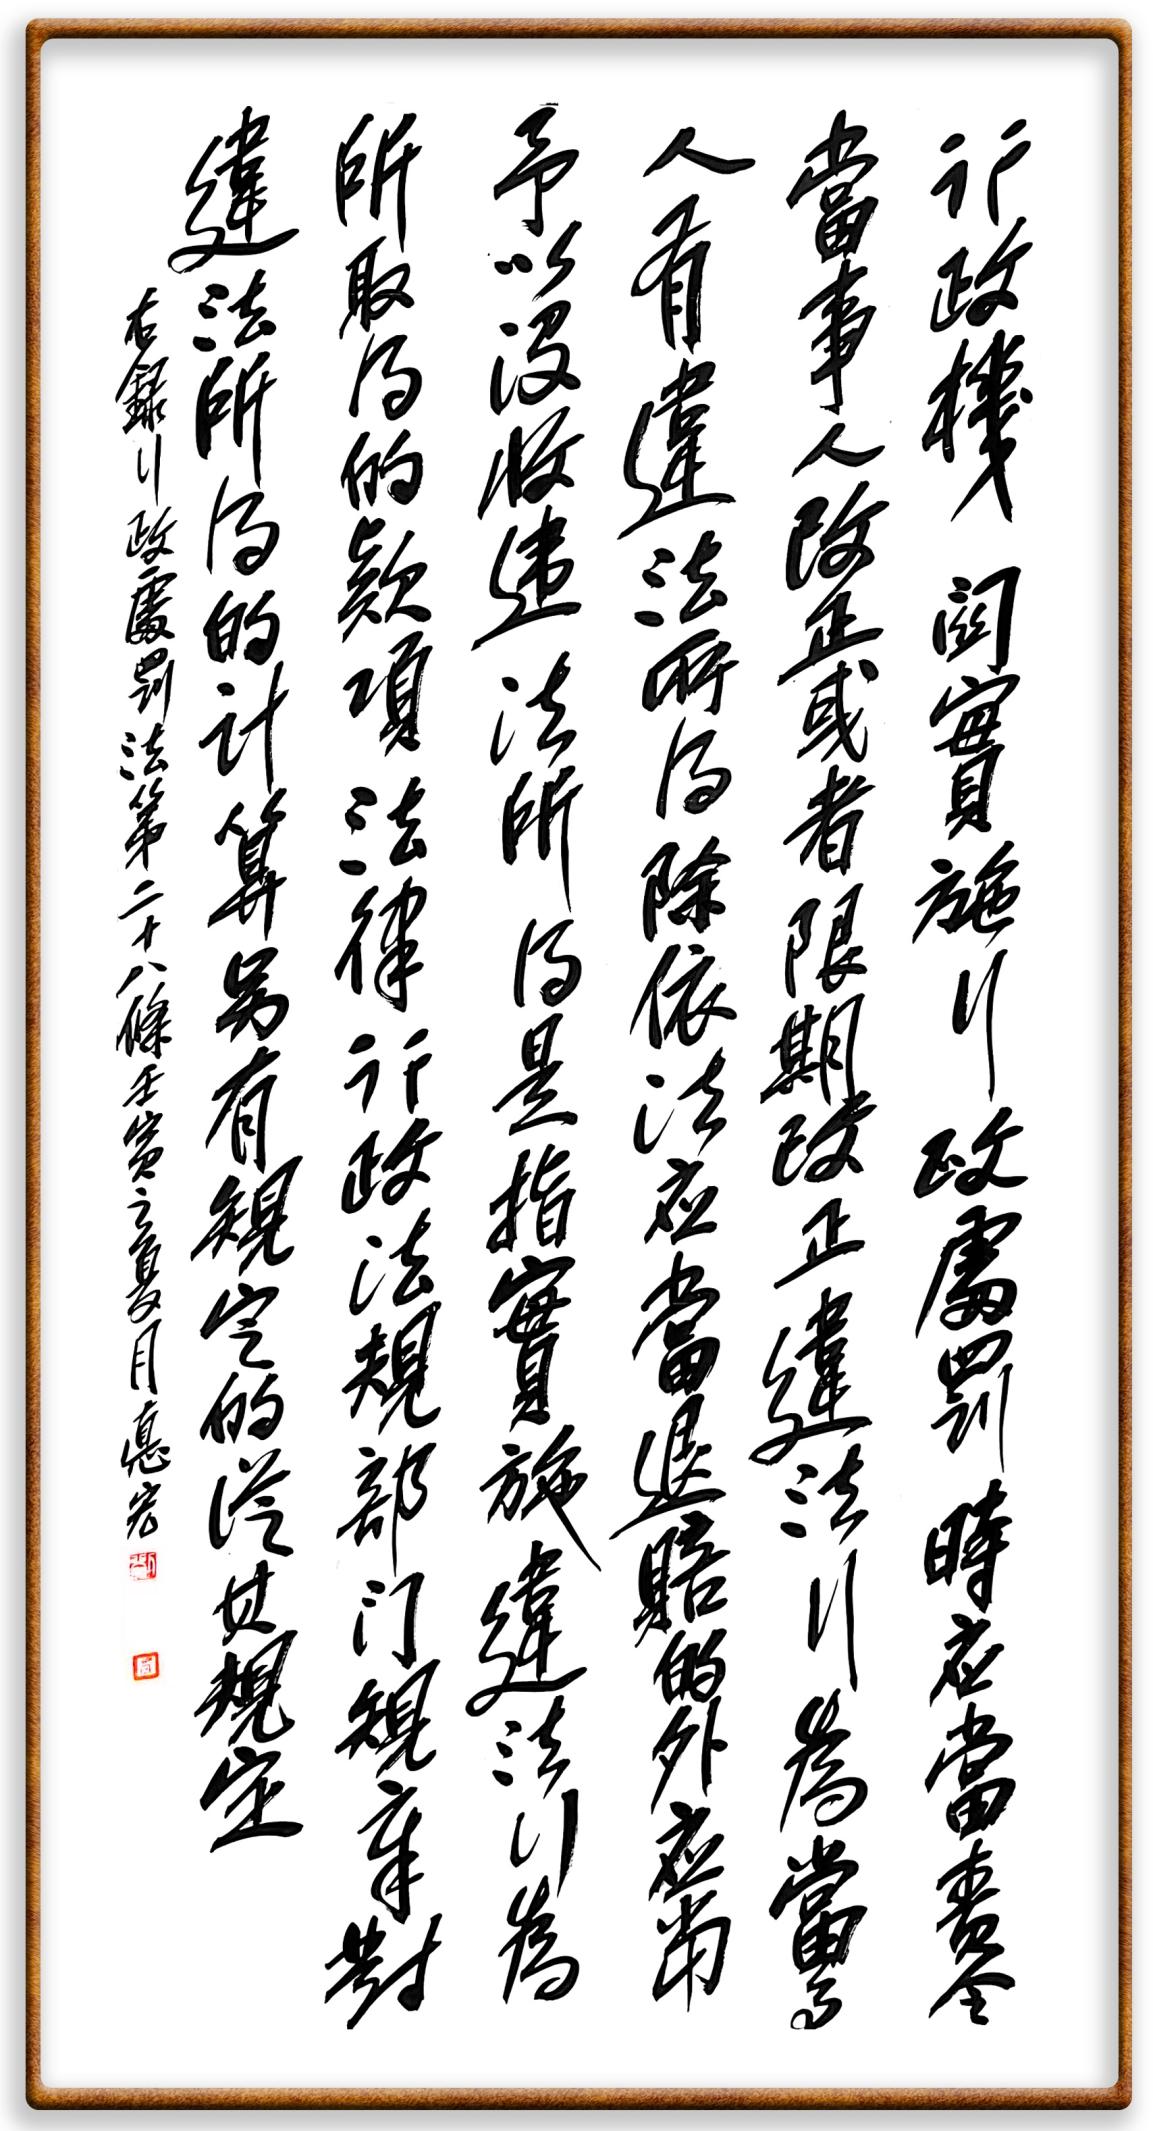 行政機關實施行政處罰時应當責令
當事人改正或者限期改正違法行為當事
人有違法所得除依法应當退賠的外应當
予以沒收違法所得是指實施違法行為
所取得的款項法律行政法規部门規章對
違法所得的計算另有規定的從其規定
右録行政處罰法第二十八條壬寅之夏月惪宏